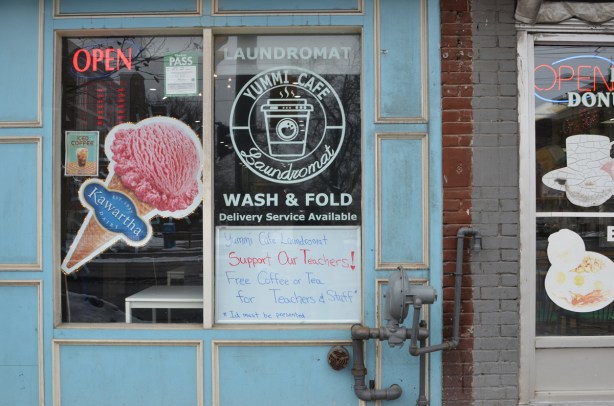 OPEN
PASS
ICED
COFFEE
Kawartha
DAIRY
LAUNDROMAT
YUMMI CAFE
Laundromat
WASH & FOLD
Delivery Service Available
Yummi Cafe Laundromat
Support Our Teachers!
Free Coffee or Tea
for Teachers & Staff*
* Id must be presented
OPEN
DONU
E